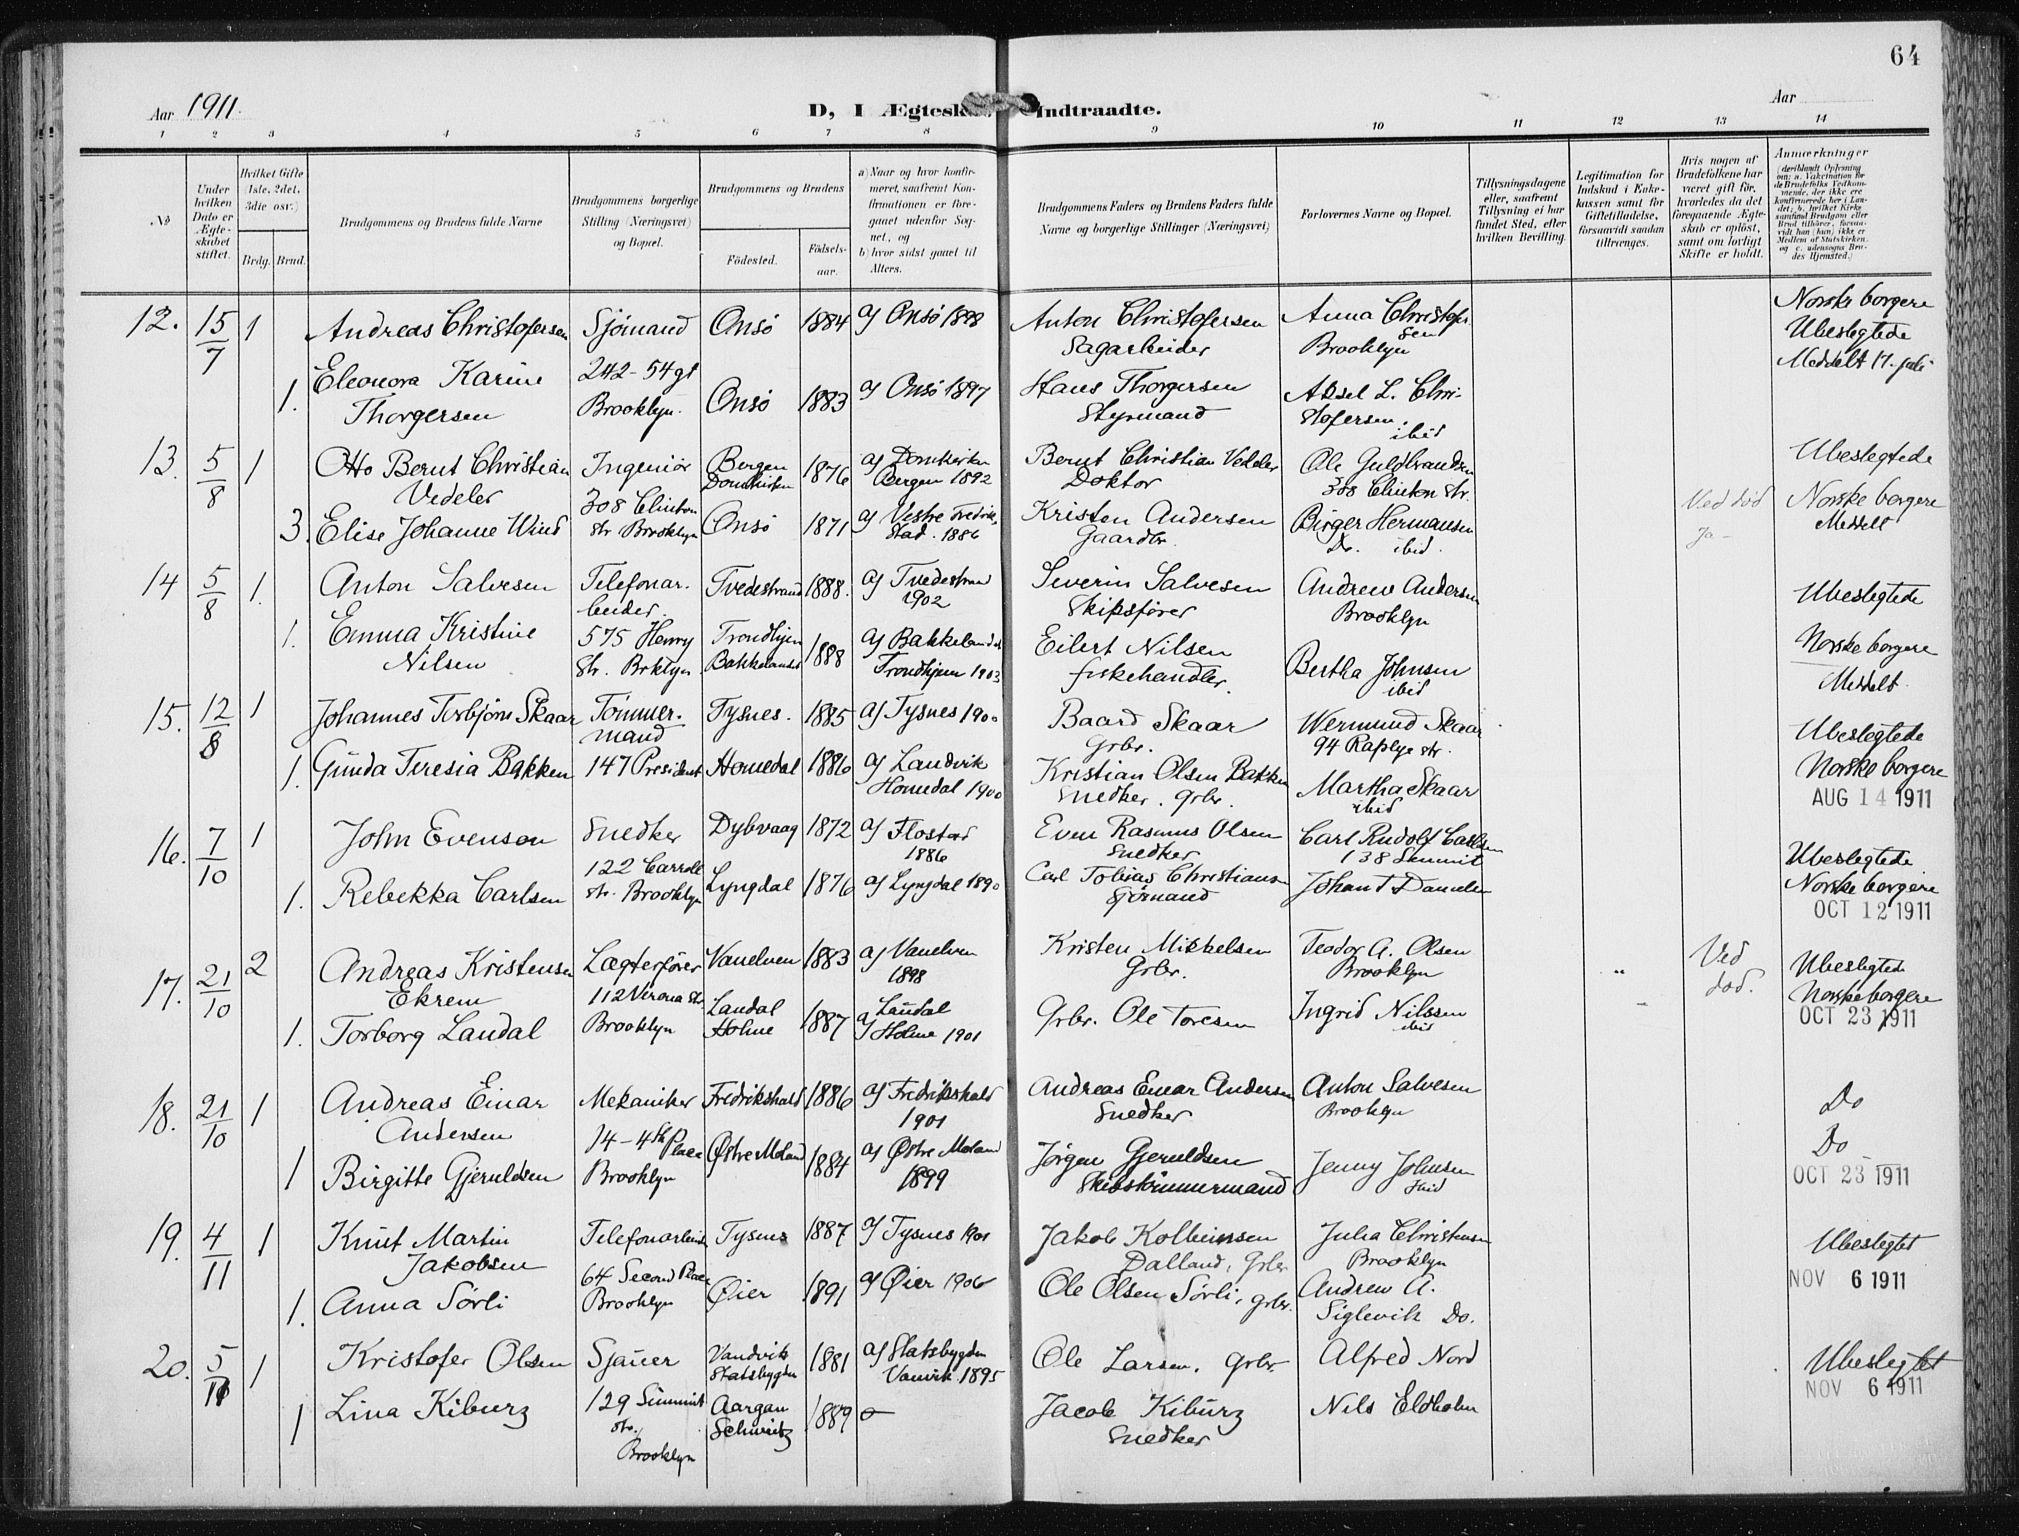 64
Aar 1911.
D, I Ægtesk Indtraadte.
Aar
1 2 3 4 5 6 7 8 9 10 11 12 13 14
№
Under hvilken Dato er Ægteskabet stiftet.
Hvilket Gifte 1ste, 2det, 3die osv.)
Brdg. Brud.
Brudgommens og Brudens fulde Navne
Brudgommens borgerlige Stilling (Næringsvei) og Bopæl.
Brudgommens og Brudens
Födested.
Födselsaar.
a) Naar og hvor konfirmeret, saafremt Konfirmationen er foregaaet udenfor Sognet, og
b) hvor sidst gaaet til Alters.
Brudgommens Faders og Brudens Faders fulde Navne og borgerlige Stillinger (Næringsvei)
Forlovernes Navne og Bopæl.
Tillysningsdagene eller, saafremt Tillysning ei har fundet Sted, efter hvilken Bevilling.
Legitimation for Indskud i Enkekassen samt for Giftetilladelse, forsaavidt saadan tiltrænges.
Hvis nogen af Brudefolkene har været gift för, hvorledes da det foregaaende Ægteskab er oplöst, samt om lovligt Skifte er holdt.
Anmærkninger
12. 15/7 1 Andreas Christofersen Sjömand Onsö 1884 af Onsö 1898 Anton Christofersen Sagarbeider Anna Christofersen Brooklyn Norske borgere Ubeslegtede Meddelt 17. juli
1. Eleonora Karine Thorgersen 242-54 gt Brooklyn. Onsö 1883 af Onsö 1897 Hans Thorgersen Styrmand Aksel L. Christofersen, ibid
13. 5/8 1 Otto Bernt Christian Vedeler Ingeniör Bergen Domkirken 1876 af Domkirken Bergen 1892 Bernt Christian Vedeler Doktor Ole Guldbrandsen 308 Clinton Str. Ubeslegtede
3. Elise Johanne Wind 308 Clinton Str Brooklyn Onsö 1871 af Vestre Fredrikstad. 1886 Kristen Andersen Gaardbr. Birger Hermansen Do. ibid. Ved död Ja- Norske borgere Meddelt
14 5/8 1. Anton Salvesen Telefonarbeider. Tvedestrand 1888. af Tvedestrand 1902 Severin Salvesen Skibsförer Andrew Andersen Brooklyn Ubeslegtede
1. Emma Kristine Nilsen 575 Henry Str. Brklyn Trondhjem Bakkelandet 1888 af Bakkelandet Trondhjem 1903 Eilert Nilsen fiskehandler. Bertha Johnsen ibid Norske borgere Meddelt.
15. 12/8 1 Johannes Torbjörn Skaar Tömmermand Tysnes. 1885 af Tysnes 1900 Baard Skaar Grbr. Wermund Skaar 94 Raplye str. Ubeslegtede
1. Gunda Teresia Bakken 147 President Homedal 1886 af Landvik Homedal 1900 Kristian Olsen Bakken Snedker. Grbr. Martha Skaar ibid Norske borgere
AUG 14 1911
16. 7/10 1 John Evenson Snedker Dybvaag 1872 af Flostad 1886 Even Rasmus Olsen Snedker Carl Rudolf Carlsen 138 Summit Ubeslegtede
1. Rebekka Carlsen 122 Carroll str. Brooklyn Lyngdal 1876 af Lyngdal 1890 Carl Tobias Christiansen Sjömand Johan T Danielsen Norske borgere
OCT 12 1911
17. 21/10 2 Andreas Kristensen Ekrem Lægterförer Vanelven 1883 af Vanelven 1898 Kristen Mikkelsen Grbr. Teodor A. Olsen Brooklyn " Ved död. Ubeslegtede
1. Torborg Laudal 112 Verona Str Brooklyn Laudal Holme 1887 af Laudal Holme 1901 Grbr. Ole Toresen Ingrid Nilssen ibid - Norske borgere
OCT 23 1911
18. 21/10 1 Andreas Einar Andersen Mekaniker Fredrikshald 1886 af Fredrikshald 1901 Andreas Einar Andersen Snedker Anton Salvesen Brooklyn Do
1 Birgitte Gjeruldsen 14-4th Place Brooklyn Østre Moland 1884 af Østre Moland 1899 Jörgen Gjeruldsen Skibstömmermand Jenny Johnsen ibid Do
OCT 23 1911
19. 4/11 1 Knut Martin Jakobsen Telefonarbeider Tysnes 1887 af Tysnes 1901 Jakob Kolbeinsen Dalland, Grbr Julia Christensen Brooklyn Ubeslegtet
NOV 6 1911
1. Anna Sörli 64 Second Place Brooklyn Øier 1891 af Øier 1906 Ole Olsen Sörli, grbr. Andrew A. Siglevik Do.
20. 5/11 1 Kristofer Olsen Sjauer Vandvik Statsbygden 1881 af Statsbygden Vanvik 1895 Ole Larsen, Grbr. Alfred Nord Ubeslegtet
NOV 6 1911
1 Lina Kiburz 129 Summit str. Brooklyn Aargau Schweitz 1889 Jacob Kiburz Snedker Nils Eldholm